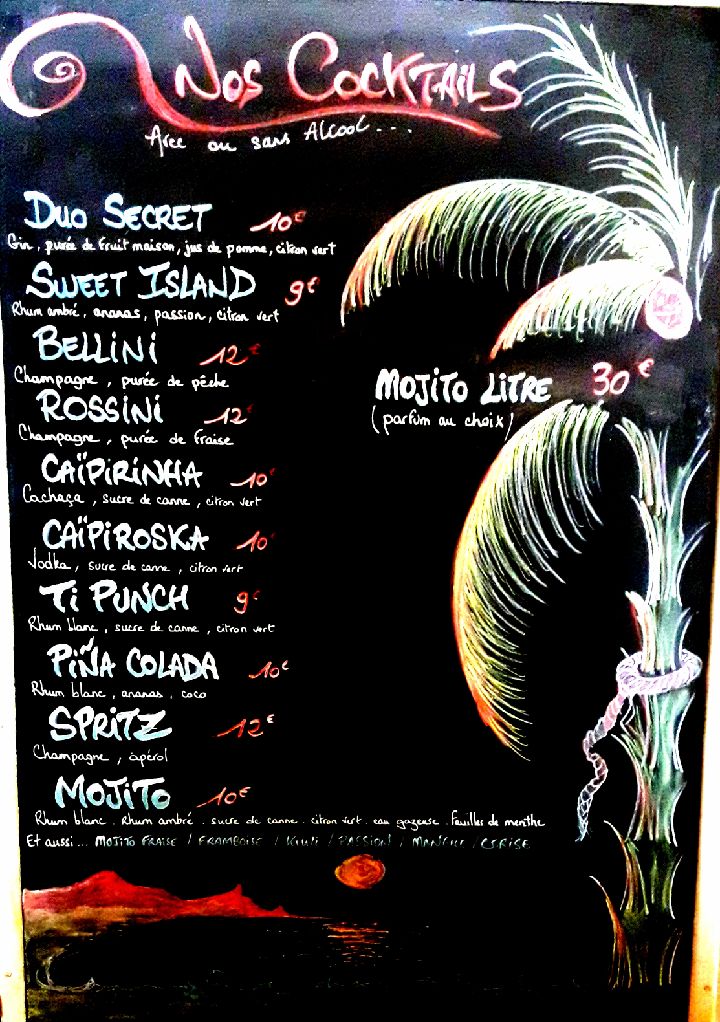 Nos Cocktails
Avec ou sans Alcool...
Duo Secret 10€
Gin, purée de fruit maison, jus de pomme, citron vert
Sweet Island 9€
Rhum ambré, ananas, passion, citron vert
Bellini 12€
Champagne, purée de pêche
Rossini 12€
Champagne, purée de fraise
Caïpirinha 10€
Cachaça, sucre de canne, citron vert
Caïpiroska 10€
Vodka, sucre de canne, citron vert
Ti Punch 9€
Rhum blanc, sucre de canne, citron vert
Piña Colada 10€
Rhum blanc, ananas, coco
Spritz 12€
Champagne, apérol
Mojito 10€
Rhum blanc. Rhum ambré. sucre de canne. citron vert. eau gazeuse. feuilles de menthe
Et aussi... Mojito fraise / framboise / kiwi / passion / / cerise
Mojito Litre 30€
(parfum au choix)